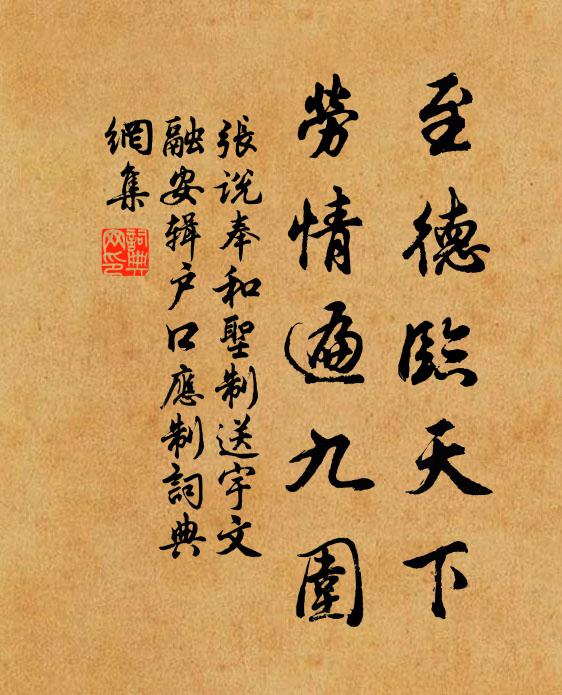 至德臨天下
勞情遍九圍
張說奉和聖制送宇文
融安辑户口應制詞典
網集
詞典網印